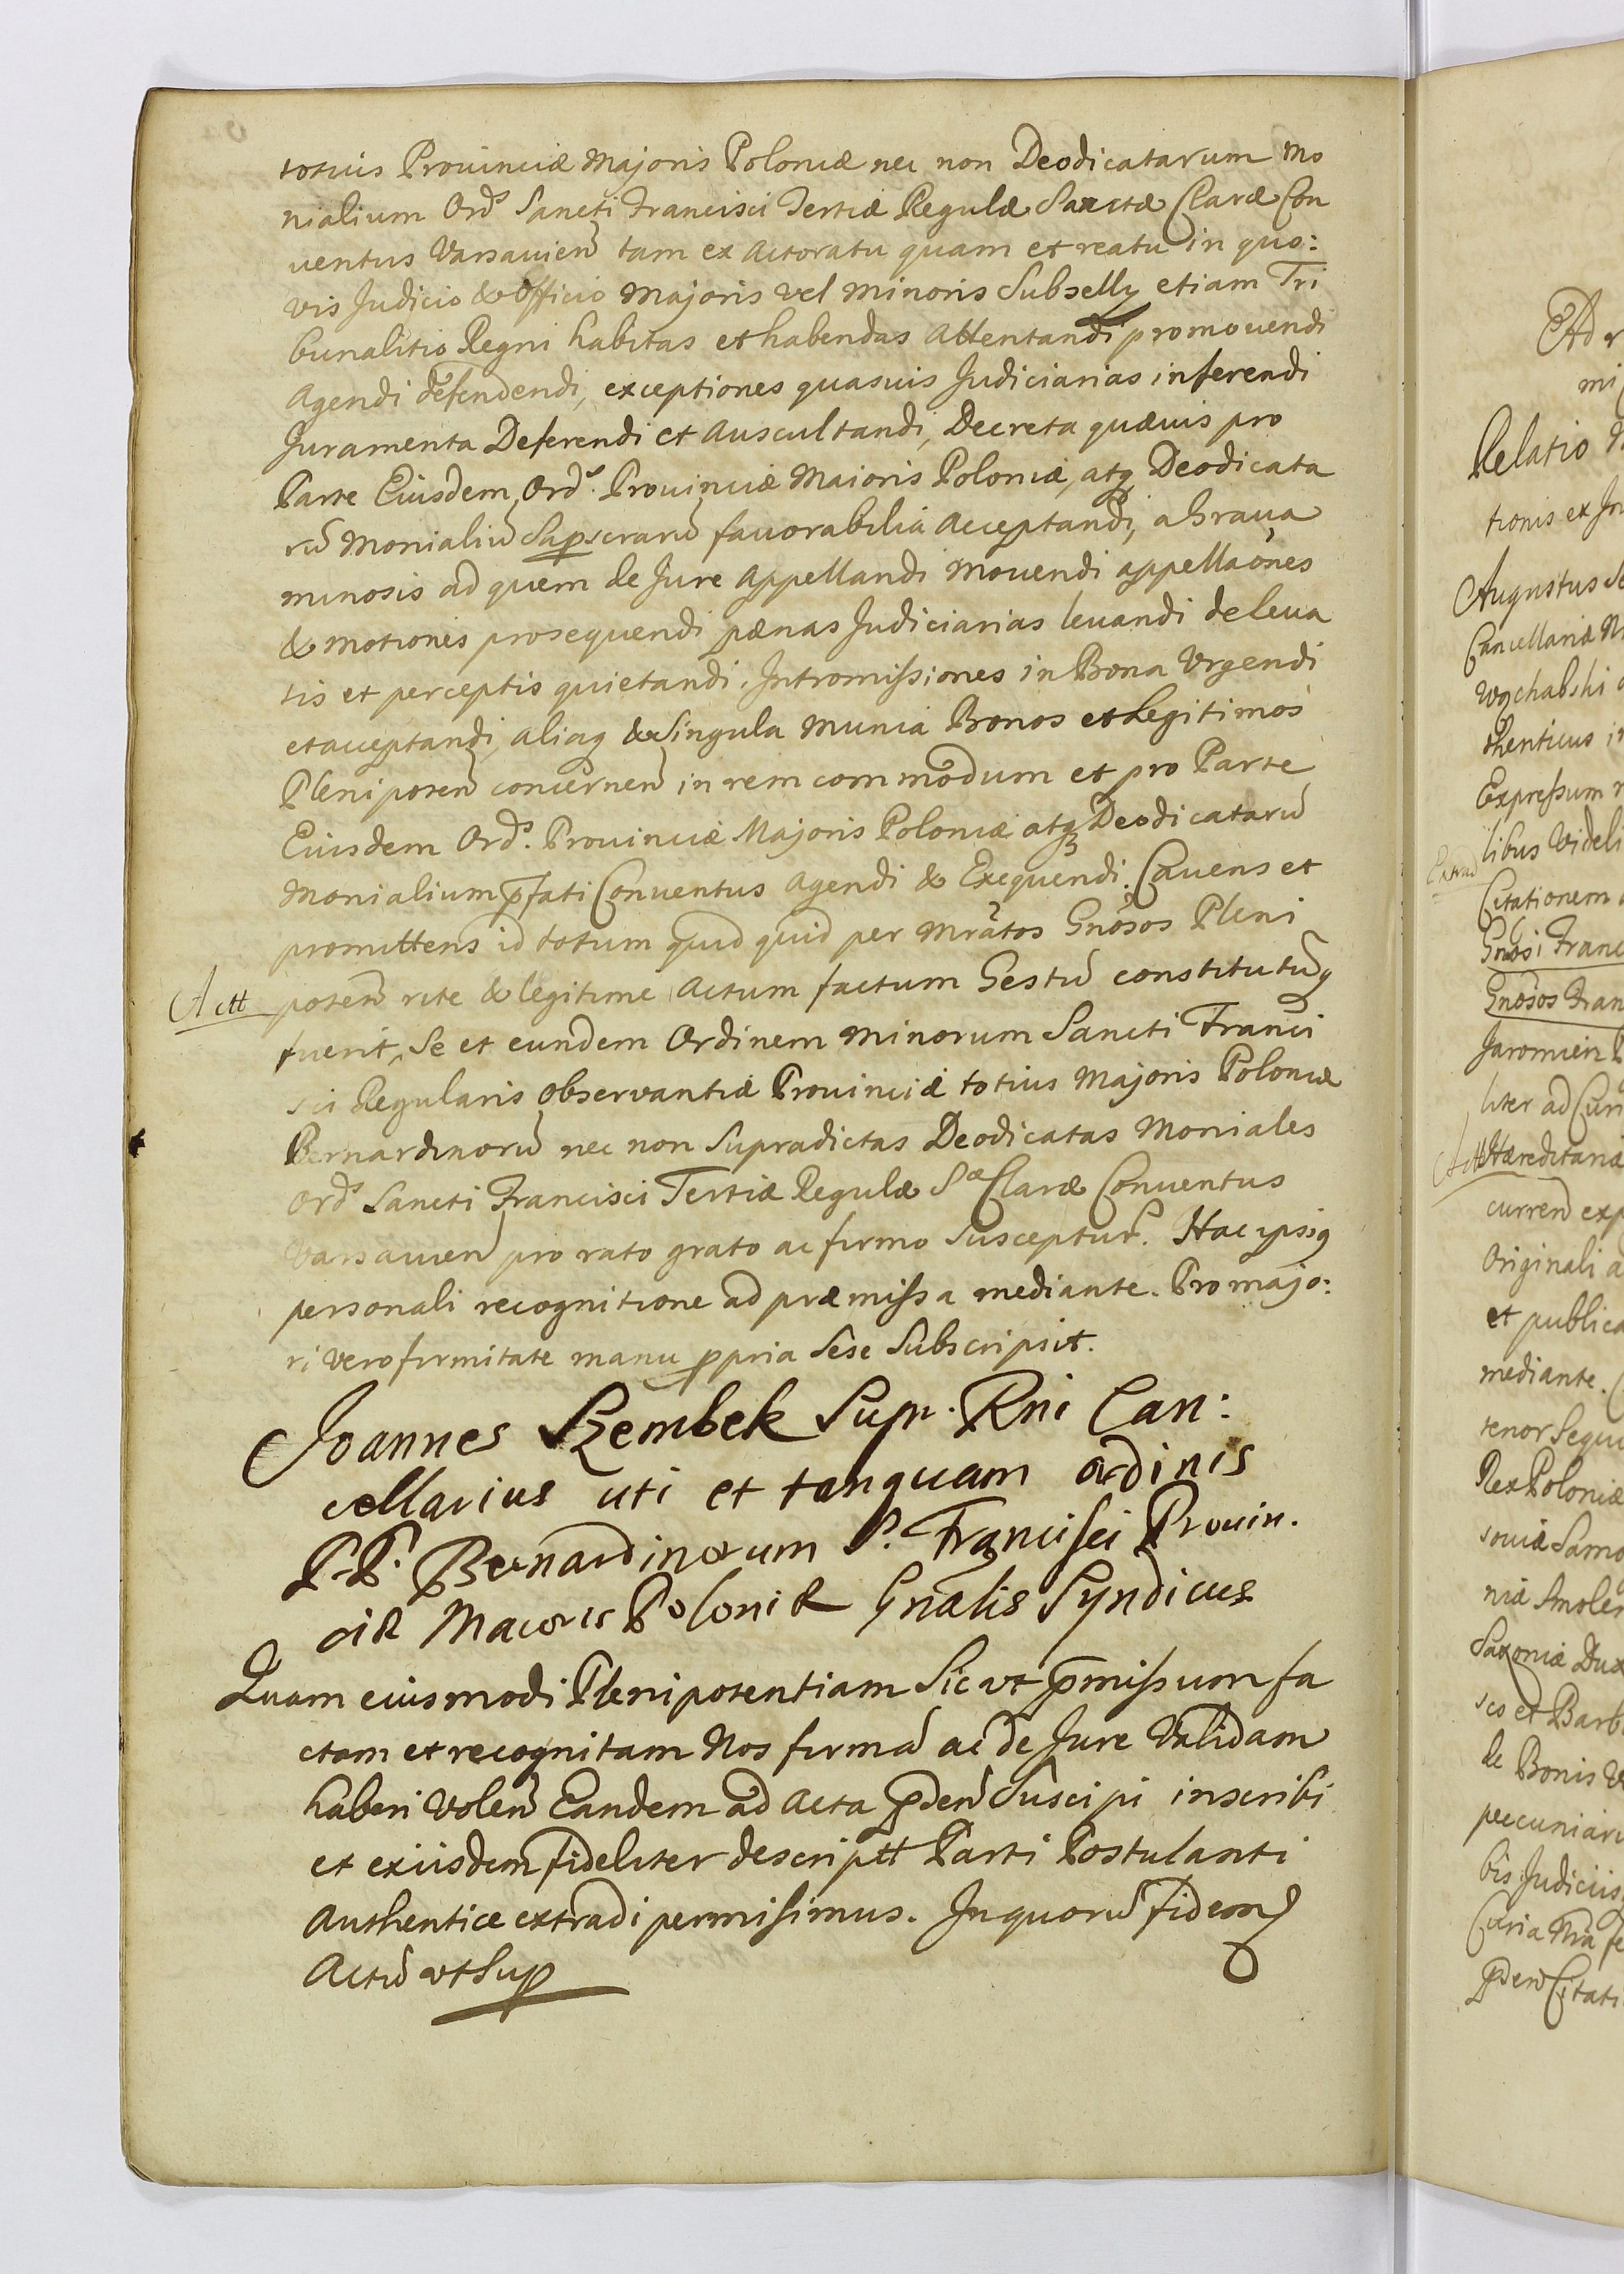 totius Prouinciæ Majoris Poloniæ nec non Deodicatarum Mo
nialium Ord̃s Sancti Francisci Tertiæ Regulæ Sanctæ Claræ Con
uentus Varsauien̄ tam ex Actoratu quam et reatu in quo:
vis Judicio & Officio Majoris vel Minoris Subsellÿ etiam Tri
bunalitio Regni habitas et habendas Attentandi promouendi
Agendi defendendi, exceptiones quasuis Judiciarias inferendi
Juramenta Deferendi et Auscultandi, Decreta quæuis pro
Parte Eiusdem Ord̃s. Prouinciæ Maioris Poloniæ, atq̃ Deodicata
rū Monialiū Supscrarū fauorabilia Acceptandi, a Graua
minosis ad quem de Jure Appellandi Mouendi appellaōnes
& Motiones prosequendi pænas Judiciarias leuandi de leua
tis et perceptis quietandi. Intromissiones in Bona Vrgendi
et acceptandi, aliaq & Singula Munia Bonos et Legitimos
Plenipoten̄ concernen̄ in rem commodum et pro Parte
Eiusdem Ord̃s. Prouinciæ Majoris Poloniæ atq₃ Deodicatarū
Monialium p̄fati Conuentus Agendi & Exequendi. Cauens et
promittens id totum quidquid per Mrãtos Gnōsos Pleni
Actt
poten̄ rite & legitime Actum factum Gestū constitutūq
fuerit, Se et eundem Ordinem Minorum Sancti Franci
sci Regularis Observantiæ Prouinciæ totius Majoris Poloniæ
Bernardinorū nec non Supradictas Deodicatas Moniales
Ord̃s Sancti Francisci Tertiæ Regulæ Sæ Claræ Conuentus
Varsauien̄ pro rato grato ac firmo Susceptur̄. Hac ipsiq
personali recognitione ad præmissa mediante. Pro majo:
ri vero firmitate manu ꝓpria Sese Subscripsit.
Joannes Szembek Supr. Rni Can:
cellarius uti et tanquam ordinis
P.P. Bernardinorum S. Francisci Prouin.
ciæ Maioris Poloniæ Gnālis Syndicus
Quam eiusmodi Plenipotentiam Sic vt p̄missum fa
ctam et recognitam Nos firmā ac de Jure Validam
haberi volen̄ Eandem ad Acta p̄den̄ Suscipi inscribi
et exiisdem fideliter descriptt Parti Postulanti
Authentice extradi permisimus. In quorū fidem
Actū vt Sup